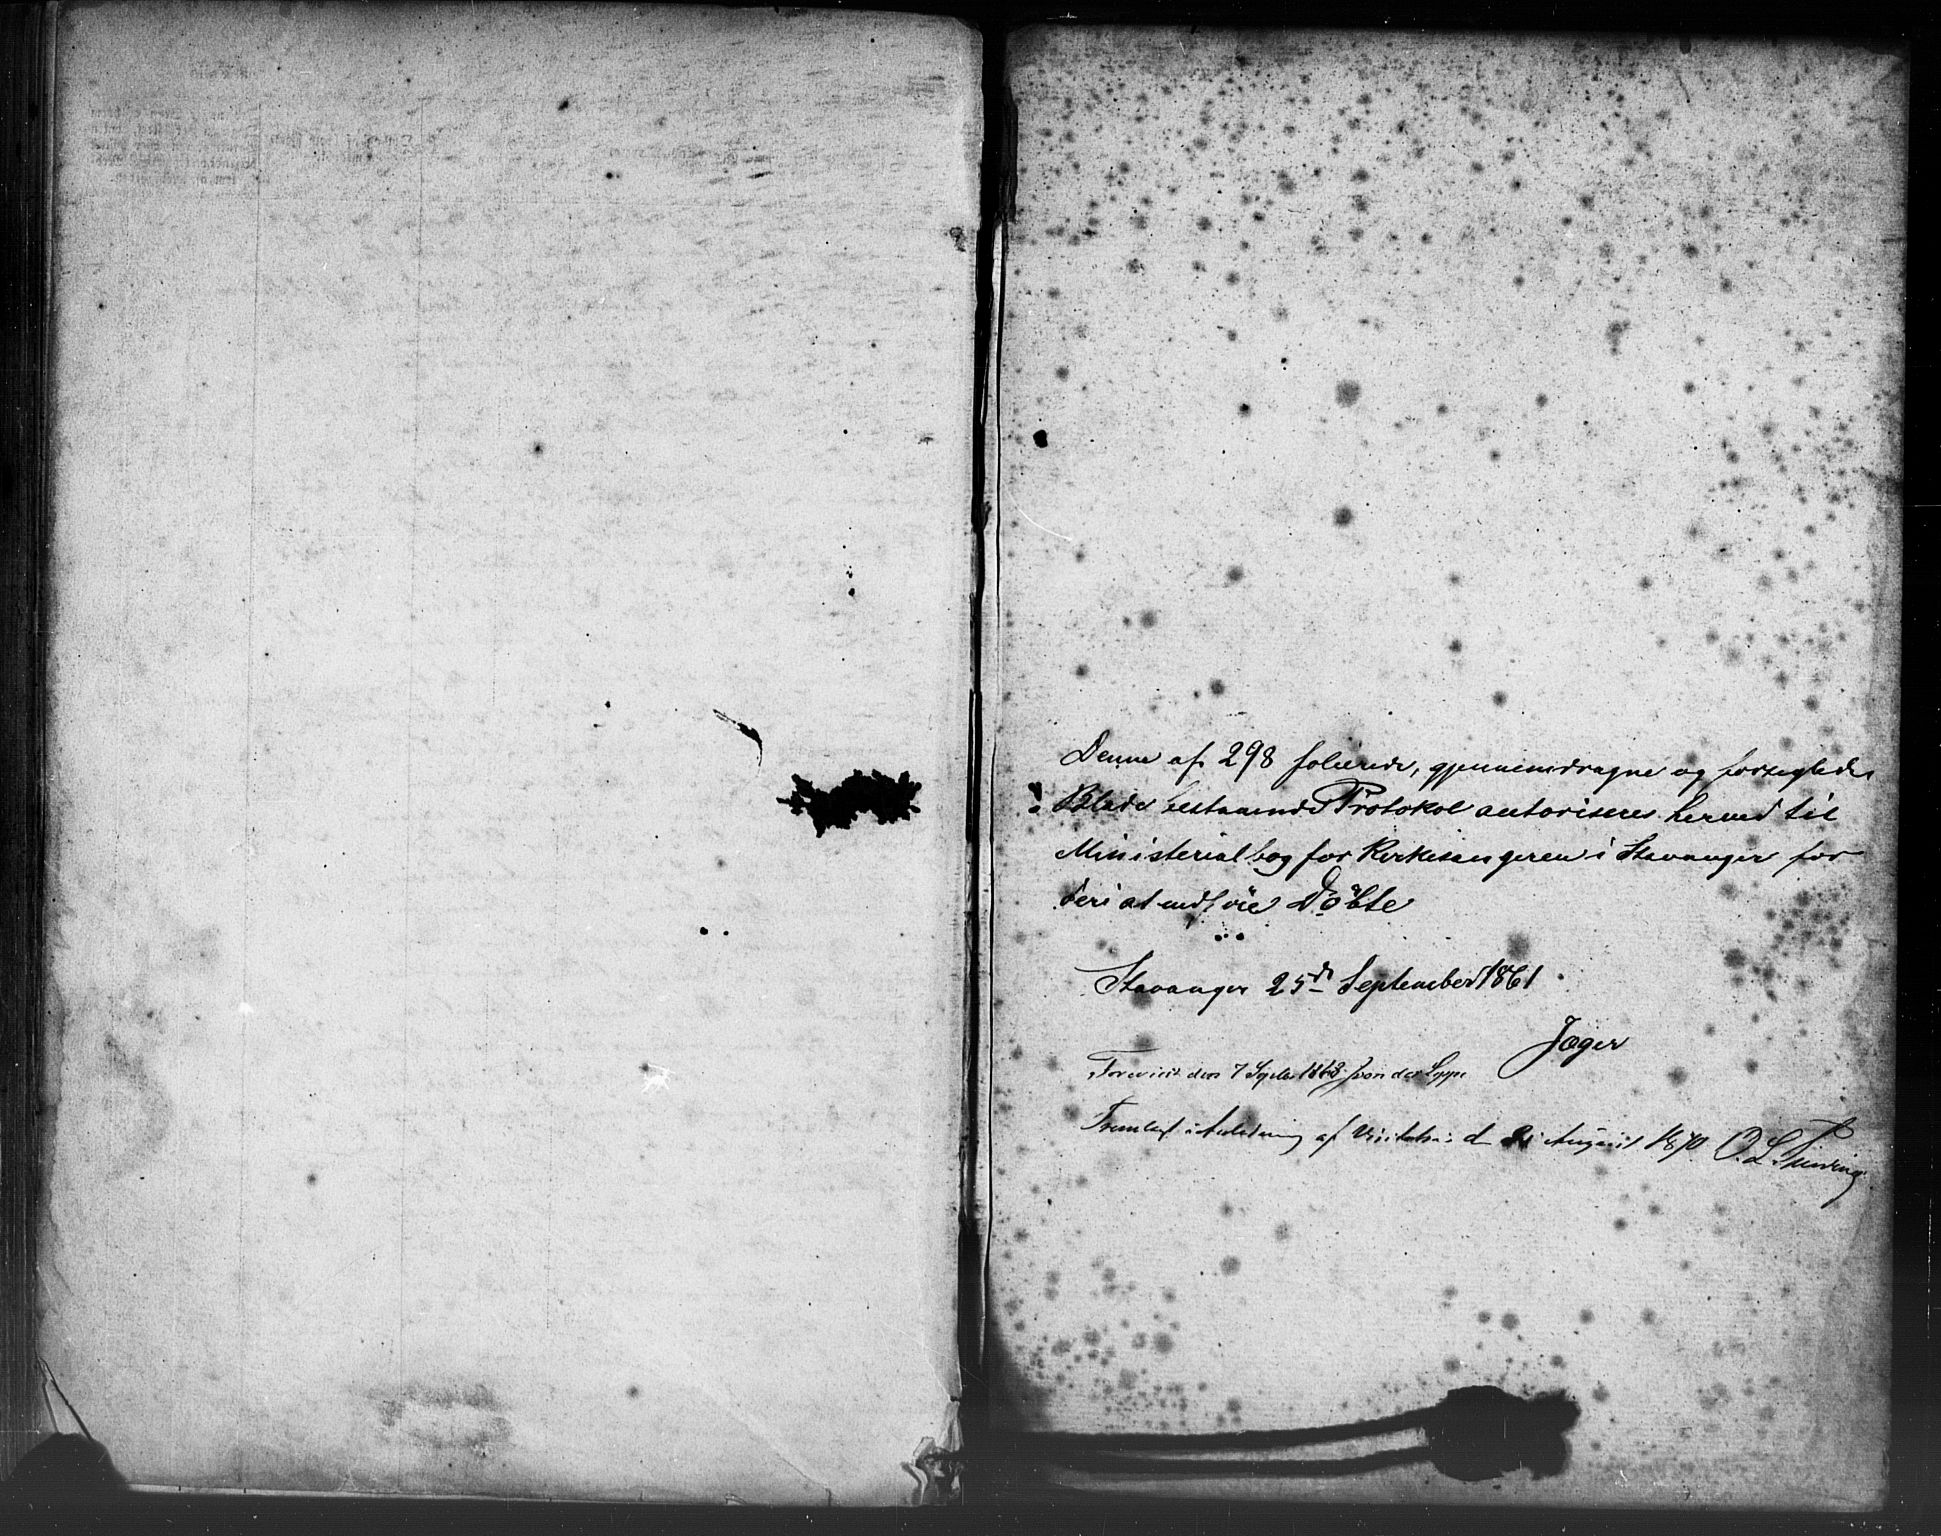 Denne af 298 folierede, gjennemdragne og forseglede
Blade bestaaende Protokol autoriseres herved til
Ministerialbog for Kirkesangeren i Stavanger for
deri at indføre Døbte
Stavanger 25d September 1861
Jæger
Forevist den 7 Septbr 1863 J von der Lippe
Fremlagt i Anledning af Visitats d August 1870